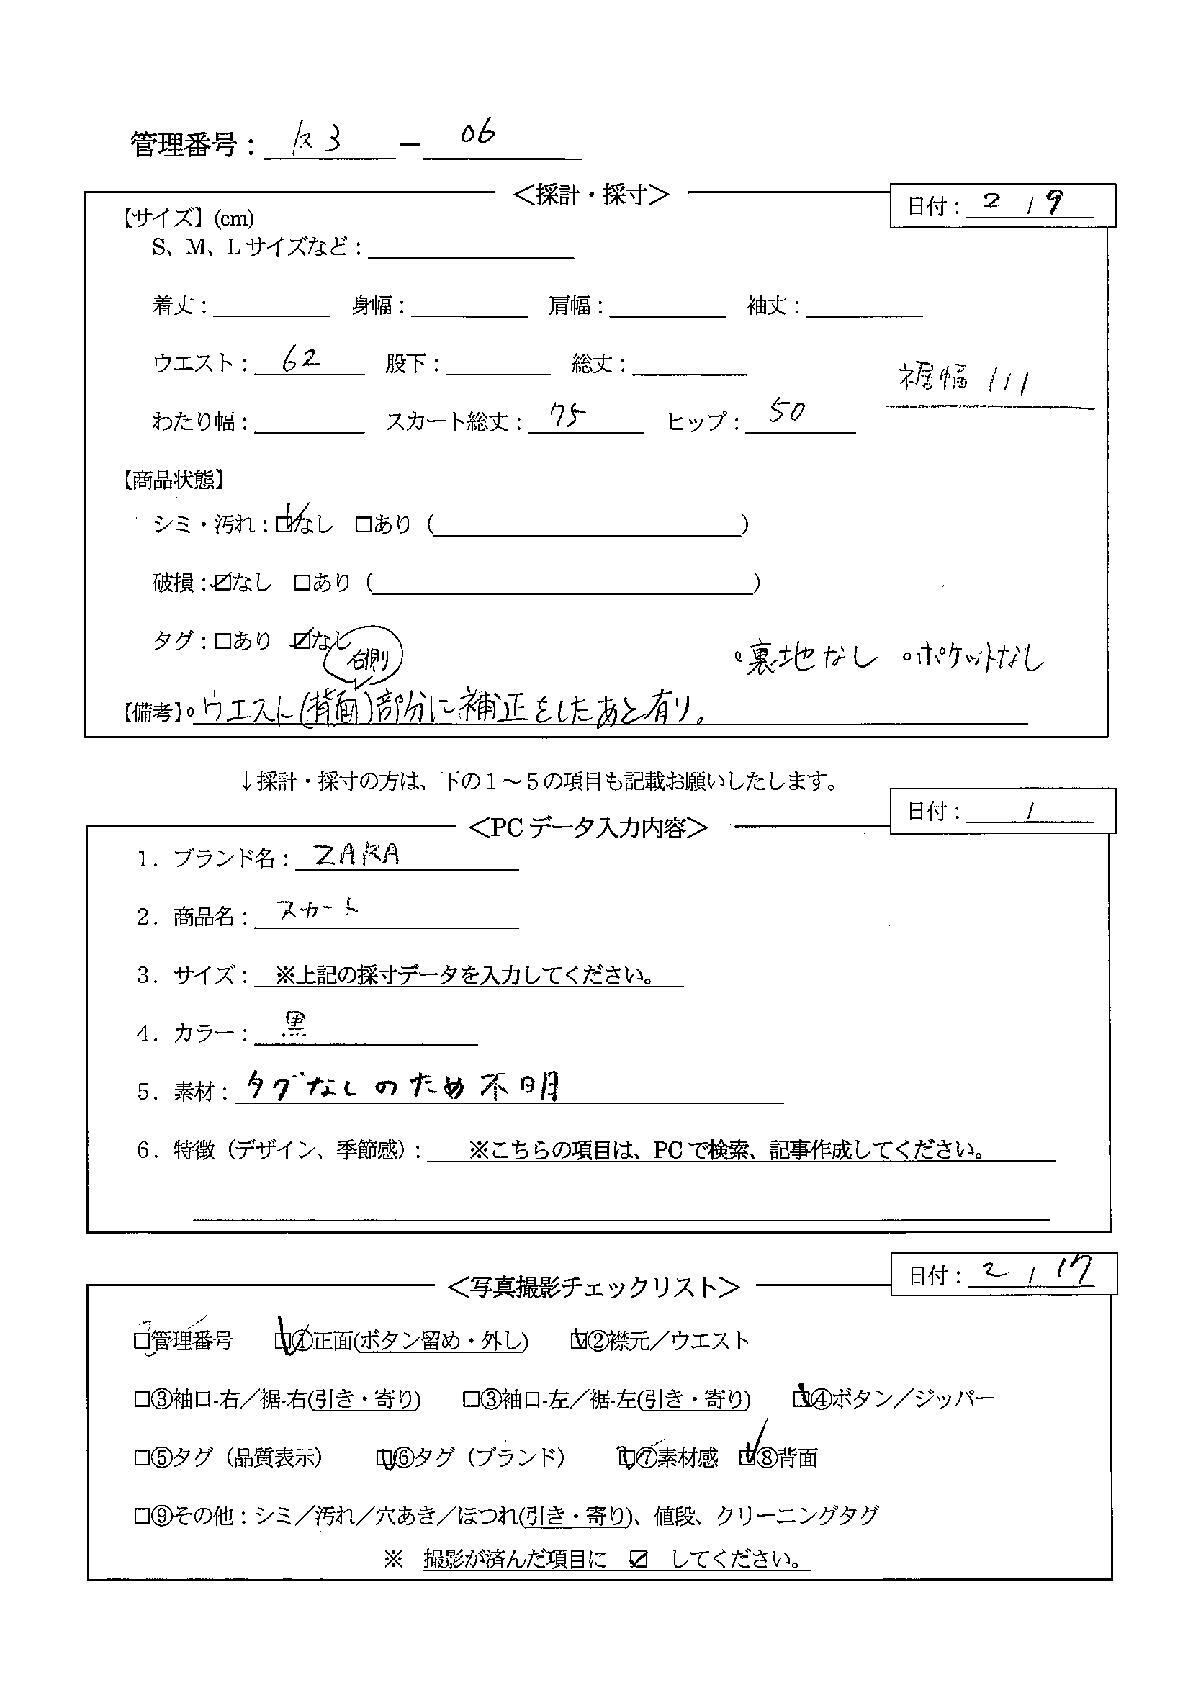 管理番号： K3 － 06
＜採計・採寸＞
日付： 2 / 9
【サイズ】(cm)
S、M、Lサイズなど：
着丈： 身幅： 肩幅： 袖丈：
ウエスト： 62 股下： 総丈：
裾幅 111
わたり幅： スカート総丈： 75 ヒップ： 50
【商品状態】
シミ・汚れ：☑なし □あり（ ）
破損：☑なし □あり（ ）
タグ：□あり ☑なし
右側
○裏地なし ○ポケットなし
【備考】○ウエスト(背面)部分に補正をしたあと有り。
↓採計・採寸の方は、下の１～５の項目も記載お願いしたします。
日付： /
＜PCデータ入力内容＞
１．ブランド名： ZARA
２．商品名： スカート
３．サイズ： ※上記の採寸データを入力してください。
４．カラー： 黒
５．素材： タグなしのため不明
６．特徴（デザイン、季節感）： ※こちらの項目は、PCで検索、記事作成してください。
日付： 2 / 17
＜写真撮影チェックリスト＞
☑管理番号 ☑①正面(ボタン留め・外し) ☑②襟元／ウエスト
□③袖口-右／裾-右(引き・寄り) □③袖口-左／裾-左(引き・寄り) ☑④ボタン／ジッパー
□⑤タグ（品質表示） ☑⑥タグ（ブランド） ☑⑦素材感 ☑⑧背面
□⑨その他：シミ／汚れ／穴あき／ほつれ(引き・寄り)、値段、クリーニングタグ
※ 撮影が済んだ項目に ☑ してください。